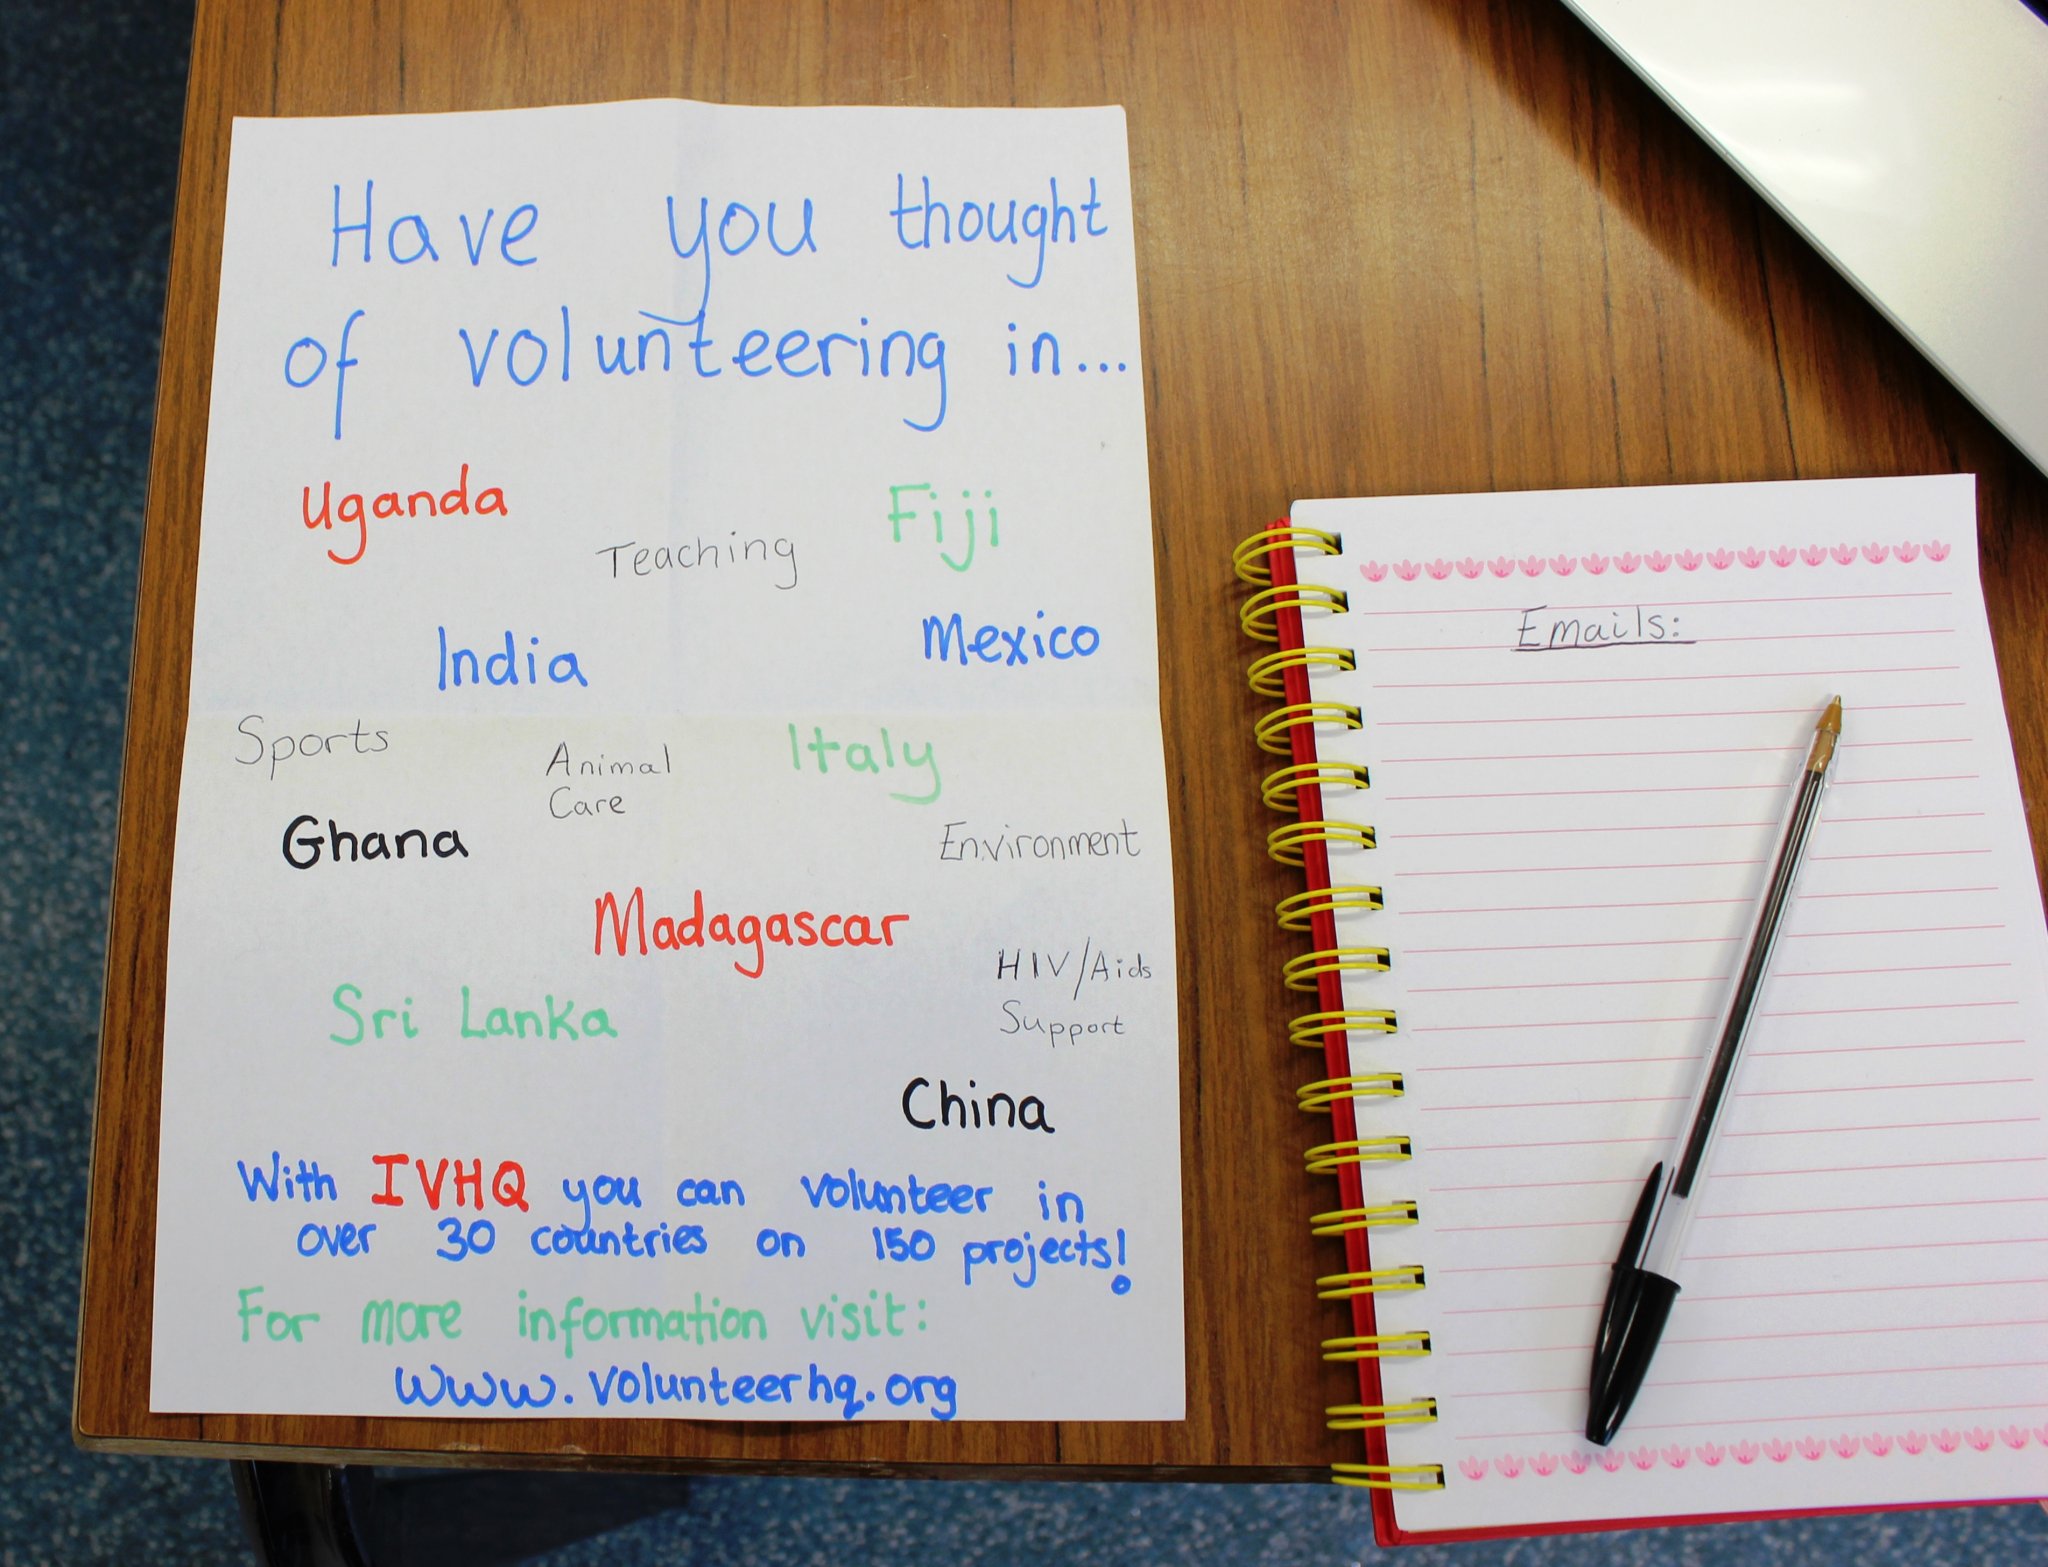 Have you thought
of volunteering in...
Uganda
Fiji
Teaching
India
Mexico
Sports
Animal
Care
Italy
Ghana
Environment
Madagascar
HIV/Aids
Support
Sri Lanka
China
With IVHQ you can volunteer in
over 30 countries on 150 projects!
For more information visit:
www.volunteerhq.org
Emails: